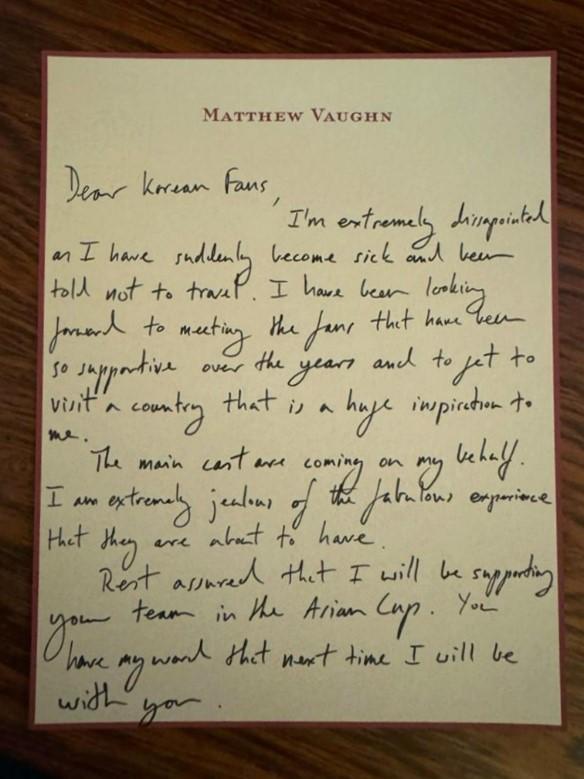 MATTHEW VAUGHN
Dear Korean Fans,
I'm extremely dissapointed
as I have suddenly become sick and been
told not to travel. I have been looking
forward to meeting the fans that have been
so supportive over the years and to get to
visit a country that is a huge inspiration to
me.
The main cast are coming on my behalf.
I am extremely jealous of the fabulous experience
that they are about to have.
Rest assured that I will be supporting
your team in the Asian Cup. You
have my word that next time I will be
with you.